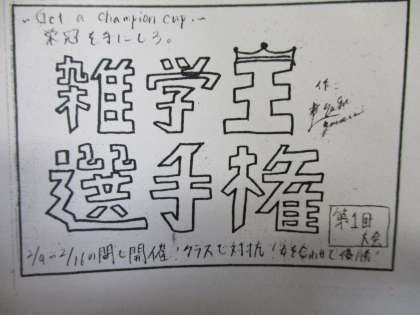 ~Get a champion cup.~
栄冠を手にしろ。
雑学王
作:
選手権
第1回
大会
2/9~2/16の間で開催!クラスで対抗!力を合わせて優勝!